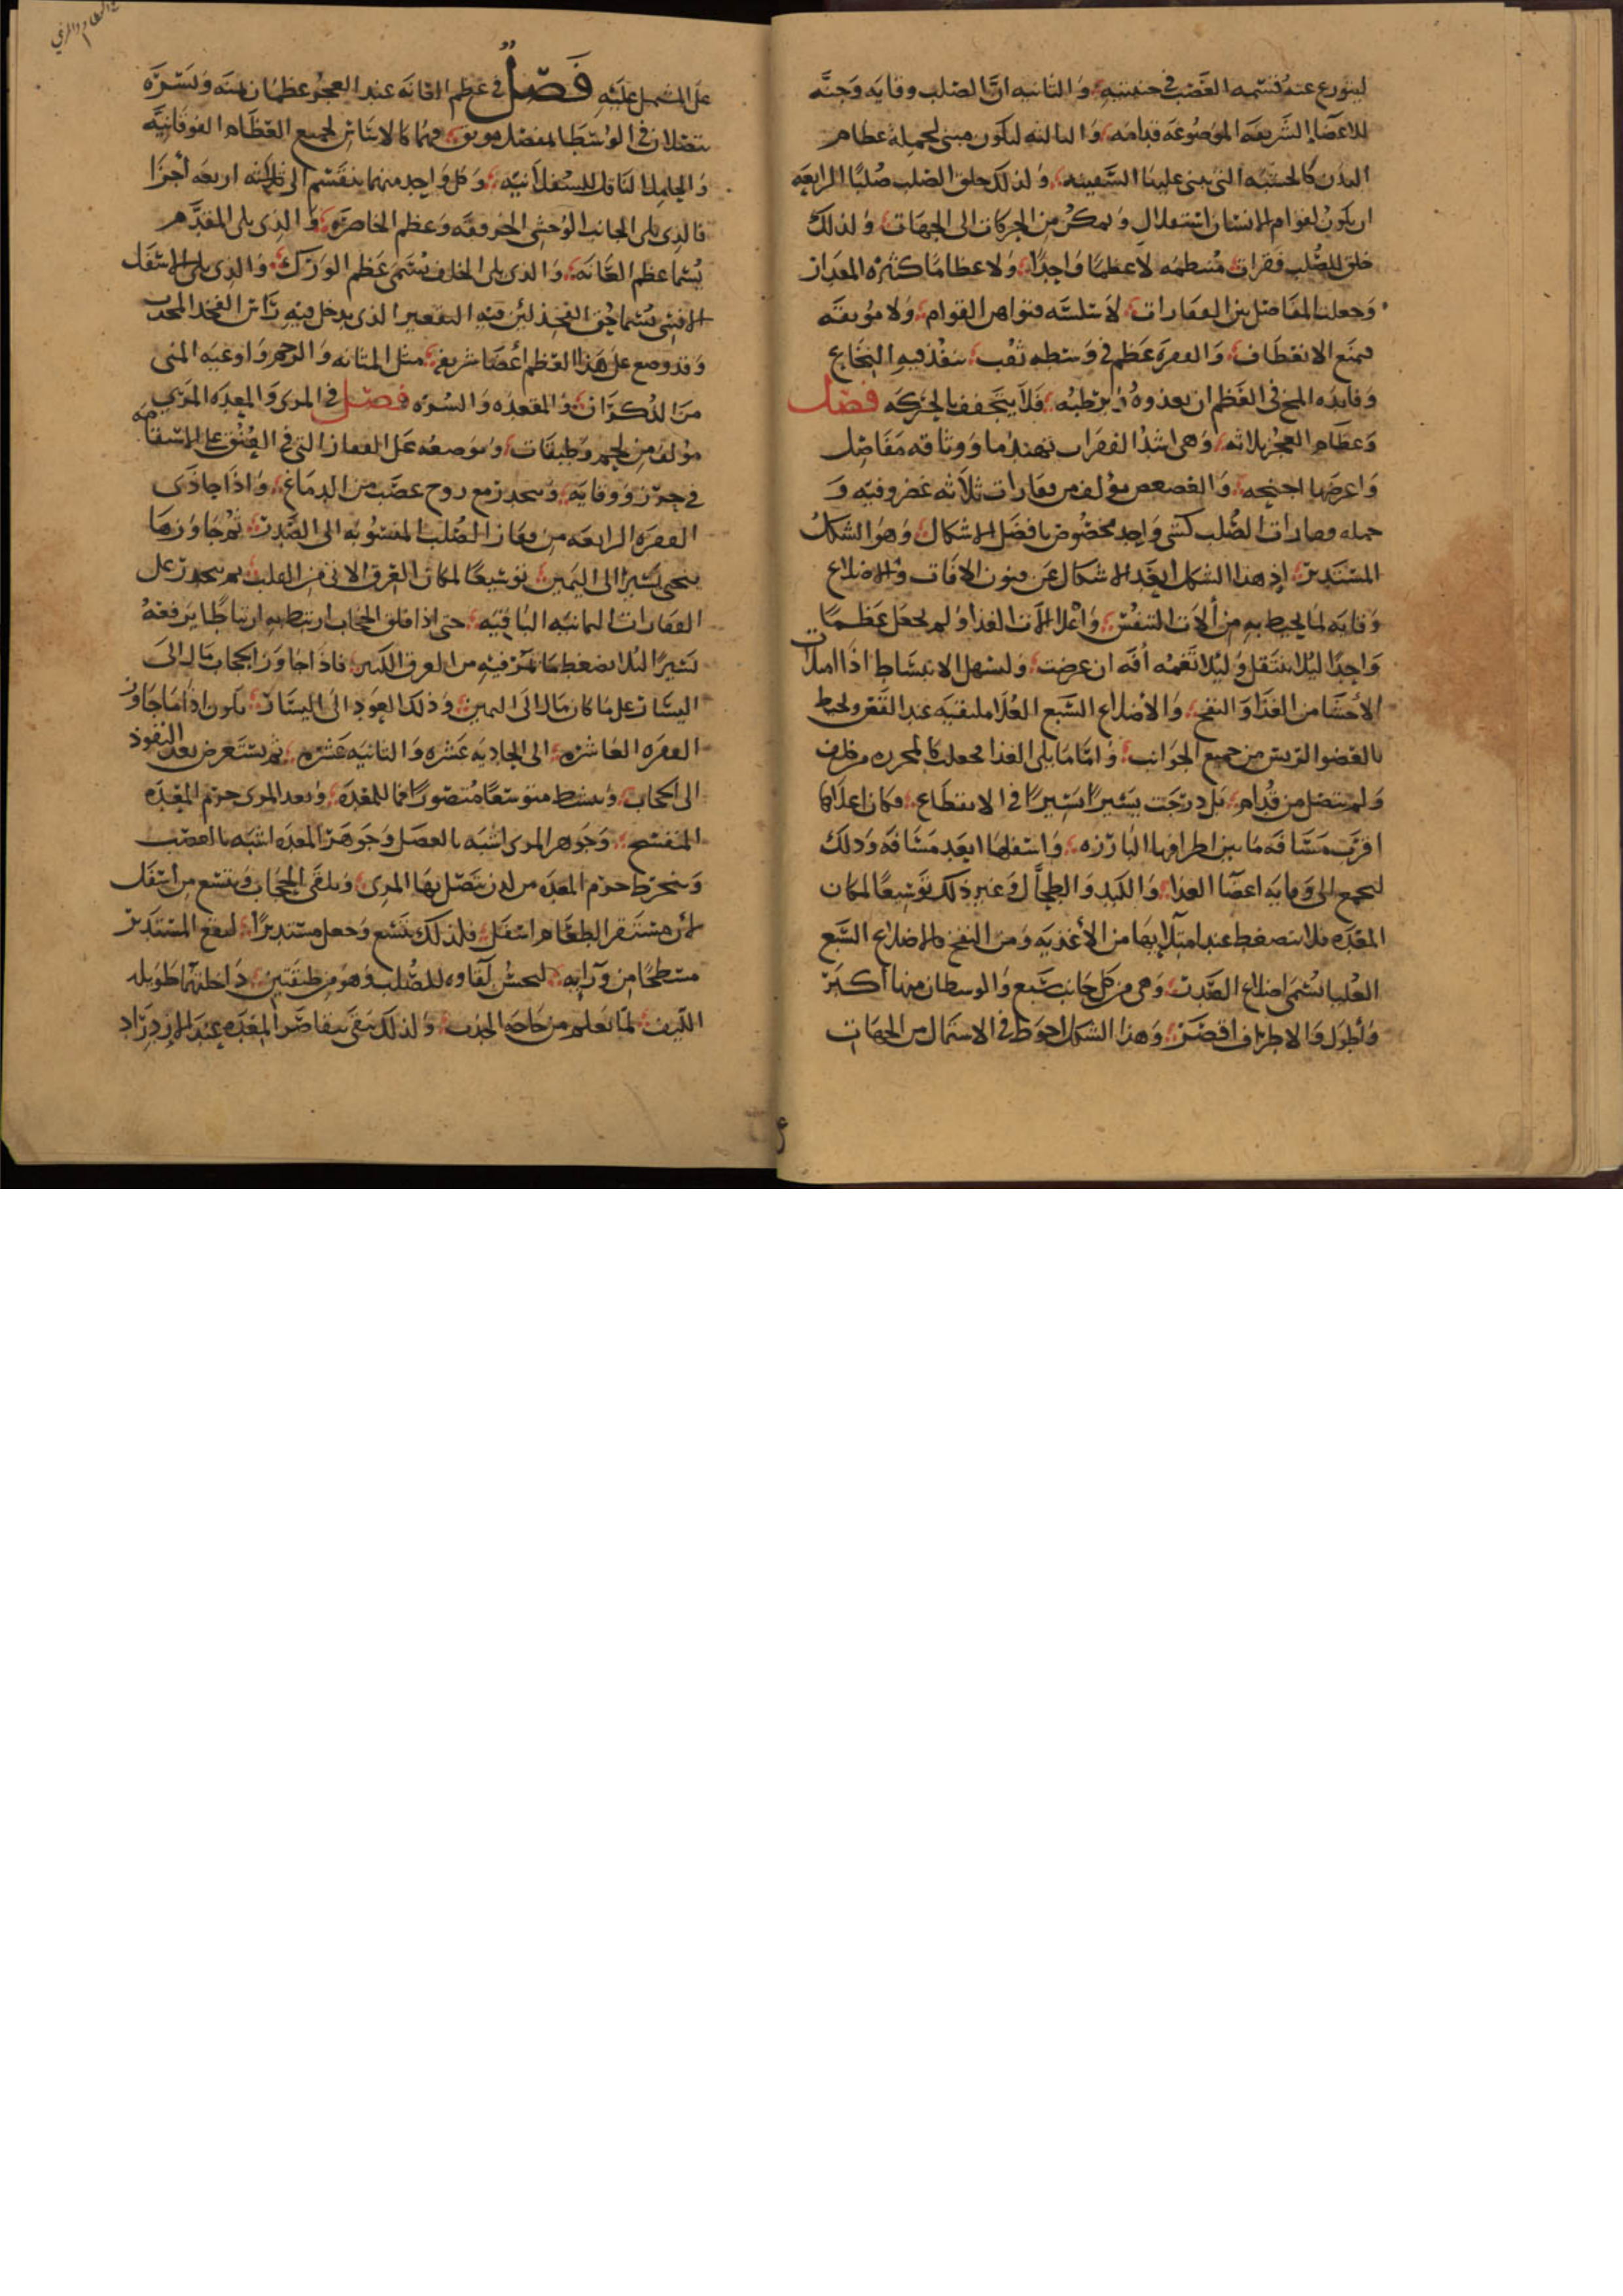 ليتورع عنه قسمه العصب في جنبتيه والثانيه ان الصلب وقايه وجنة
للاعضا الشريفه الموضوعه قدامه والثالثه ليكون مبنى لجملة عظام
البدن كالخشبه التى تبنى عليها السفينه ولذلك خلق الصلب صلبا الرابعه
ان يكون لقوام الانسان استقلال وتمكن من الحركات الى الجهات ولذلك
خلق للصلب فقرات منتظمه لا عظما واحدا ولا عظاما كثيره المقدار
وجعلت المفاصل بين الفقارات لا سلسه فتواهن القوام ولا موثقه
فتمنع الانعطاف والفقره عظم في وسطه ثقب ينفذ فيه النخاع
وفايده المخ في العظم ان يغذوه ويرطبه فلا يتجفف بالحركه فصل
وعظام العجز ثلاثه وهى اشد الفقرات تهندما ووثاقه مفاصل
واعرضها اجنحه والعصعص مؤلف من فقارات ثلاثه غضروفيه و
جمله فقارات الصلب كشى واحد مخصوص بافضل الاشكال وهو الشكل
المستدير اذ هذا الشكل ابعد الاشكال عن قبول الافات والاضلاع
وقايه لما يحيط به من ألات التنفس واعلا الات الغذا ولم يجعل عظما
واحدا ليلا يتثقل وليلا تعمه أفه ان عرضت وليسهل الانبساط اذا امتلات
الأحشا من الغذا والنفخ والاضلاع السبع العلا ملتقيه عند القص ولحيط
بالعضو الريس من جميع الجوانب واما ما يلى الغذا فجعلت كالمحرزه من خلف
ولم تتصل من قدام بل درجت يسيرا يسيرا في الانقطاع فكان اعلاها
اقرب مسافه ما بين اطرافها البارزه واسفلها ابعد مسافه وذلك
ليجمع الى وقايه اعضا الغذا والكبد والطحال وغير ذلك توسيعا لمكان
المعده فلا تنضغط عند امتلايها من الأغذيه ومن النفخ فالاضلاع السبع
العليا تسمى اضلاع الصدر وهى من كل جانب سبع والوسطان منها أكبر
وأطول والاطراف اقصر وهذا الشكل احوط في الاشتمال من الجهات
على المشتمل عليه فصل في عظم العانه عند العجز عظمان يمنه ويسره
يتصلان في الوسط بمفصل موثق وهما كالاساس لجميع العظام الفوقانيه
والحامل الناقل للسفلانيه وكل واحد منهما ينقسم الى اربعه أجزا
فالذى يلى الجانب الوحشى الحرقفه وعظم الخاصره والذى يلى المقدم
يسما عظم العانه والذى يلى الخلف يسمى عظم الورك والذى يلى الاسفل
الانسى يسما حق الفخذ لئن فيه التقعير الذى يدخل فيه راس الفخذ المحدب
وقد وضع على هذا العظم أعضا شريفه مثل المثانه والرحم واوعيه المنى
من الذكران والمقعده والسره فصل في المرى والمعده المرى
مؤلف من لحم وطبقات وموضعه على الفقار التى في العنق على الاستقامه
في حرز ووقايه وينحدر مع زوج عصب من الدماغ واذا حاذى
الفقره الرابعه من فقار الصلب المنسوبه الى الصدر ثم جاوزها
ينحى يسيرا الى اليمين توسيعا لمكان العرق الاتى من القلب ثم ينحدر على
الفقارات الثمانيه الباقيه حتى اذا فلق الحجاب ارتبط به ارتباطا يرفعه
يسيرا ليلا يضغط ما يمر فيه من العرق الكبير فاذا جاوز الحجاب مال الى
اليسار على ما كان مال الى اليمين وذلك العود الى اليسار يكون اذا ما جاوز
الفقره العاشره الى الحاديه عشره والثانيه عشره ثم يستعرض بعد النفوذ
الى الحجاب وينبسط متوسعا متصورا فما للمعده وبعد المرى جرم المعده
المنفسح وجوهر المرى اشبه بالعضل وجوهر المعده اشبه بالعصب
وينخرط جرم المعده من لدن يتصل بها المرى ويلقى الحجاب ويتسع من اسفل
لأن مستقر الطعام اسفل فلذلك يتسع وجعل مستديرا لمنفع المستدير
مسطحا من ورايه ليحسن لقاوه للصلب وهو من طبقتين داخلتهما طويله
الليف لما تعلم من حاجه الجذب ولذلك تبقى تتقاصر المعده عند الازدراد